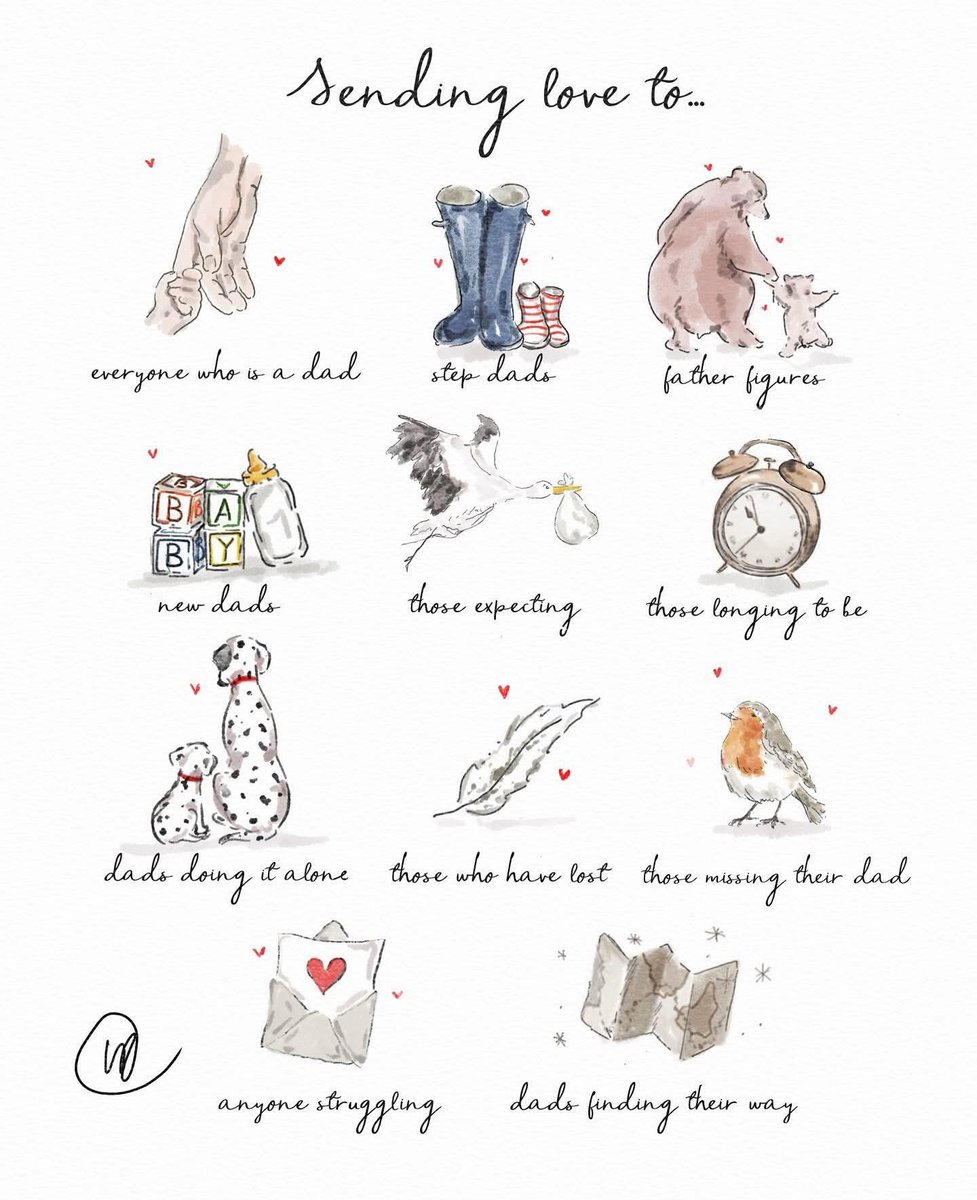 Sending love to...
everyone who is a dad
step dads
father figures
B B
A
B
Y
1
new dads
those expecting
those longing to be
dads doing it alone
those who have lost
those missing their dad
anyone struggling
dads finding their way